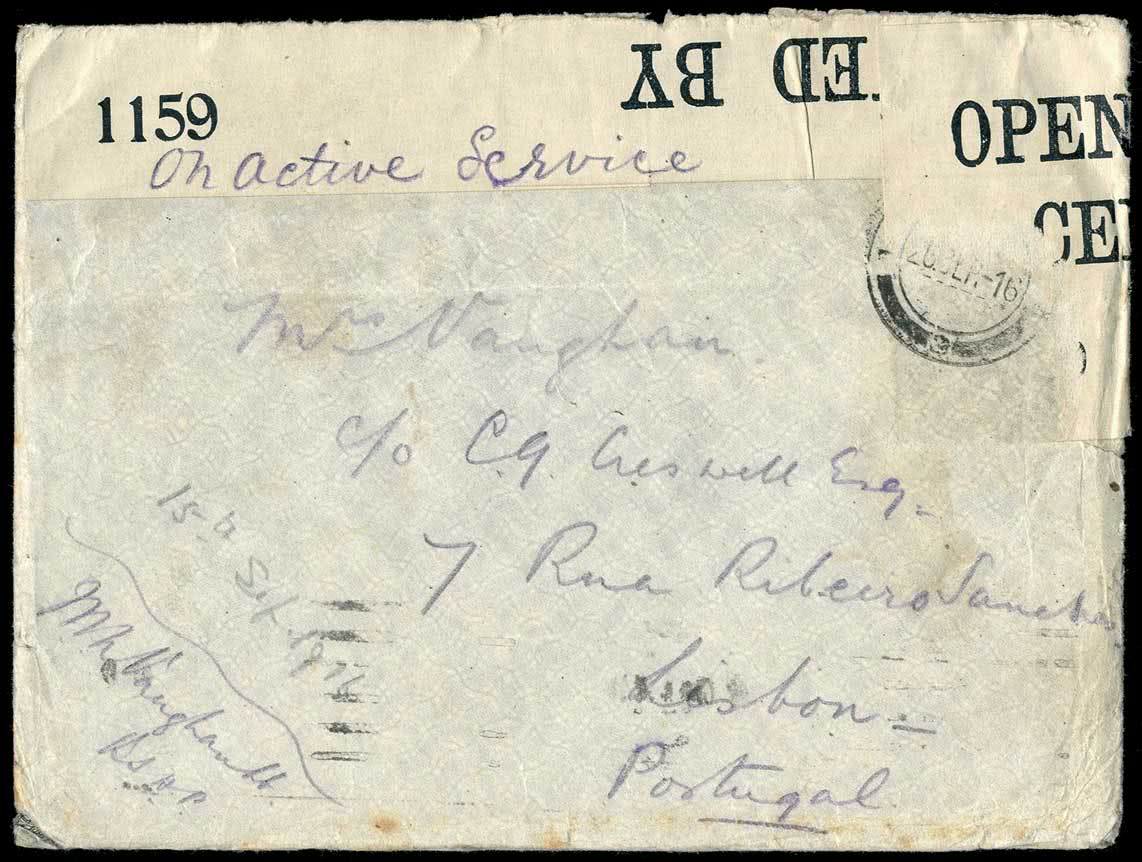 ED BY
OPEN
CE
1159
On Active Service
20 SEP 16
Mrs Vaughan.
c/o C.G. Creswell Esq.
7 Rua Ribeiro Sanches
Lisbon
Portugal
15th Sept 1916
Vaughan